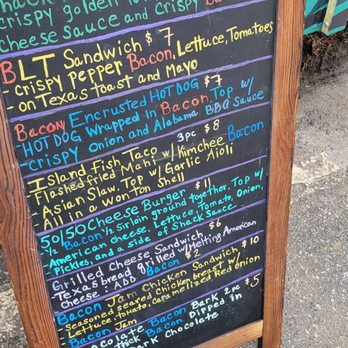 crispy golden
cheese sauce and crispy Bacon
BLT Sandwich $7
- crispy pepper Bacon, Lettuce, Tomatoes
- on Texas toast and Mayo
Bacon Encrusted HOT DOG $7
- HOT DOG Wrapped in Bacon, Top w/
- crispy onion and Alabama BBQ Sauce
Island Fish Taco 3pc $8
- Flashed fried Mahi w/ Kimchee Bacon
Asian Slaw, Top w/ Garlic Aioli
All in a Won Ton Shell
50/50 Cheese Burger $11
- ½ Bacon ½ Sirloin ground together. Top w/
American cheese, Lettuce, Tomato, Onion,
Pickles, and a side of Shack Sauce
Grilled Cheese Sandwich $6
- Texas bread grilled w/ Melting American
cheese: ADD Bacon $2
Bacon Jam Chicken Sandwich $10
- Seasoned seared Chicken breast w/
- Lettuce, tomato, caramelized Red onion
- Bacon Jam
colate Bacon Bark 2pc $5
hick Bacon Dipped in
ark Chocolate